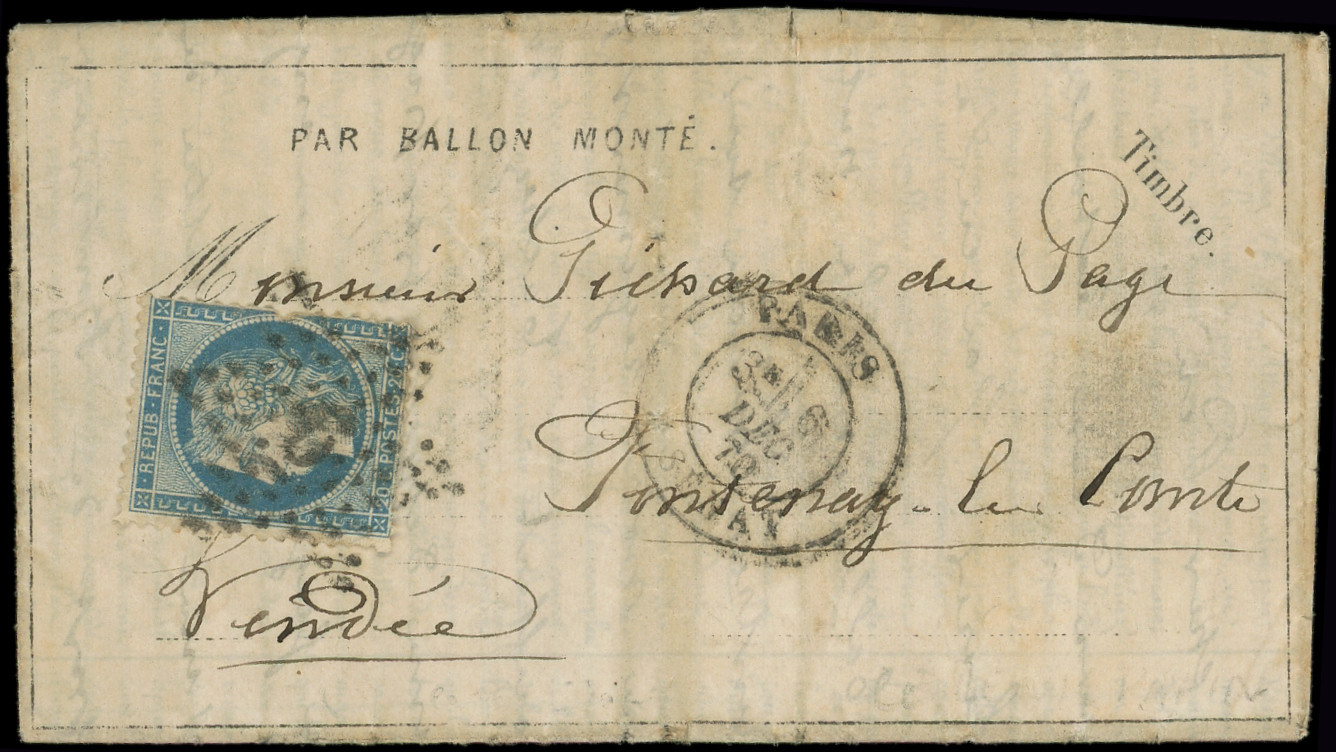 PAR BALLON MONTÉ.
Timbre.
Monsieur Pichard du Page
Fontenay-le Comte
Vendée
REPUB·FRANC·
20 C POSTES 20 C
PARIS
6
DEC
70